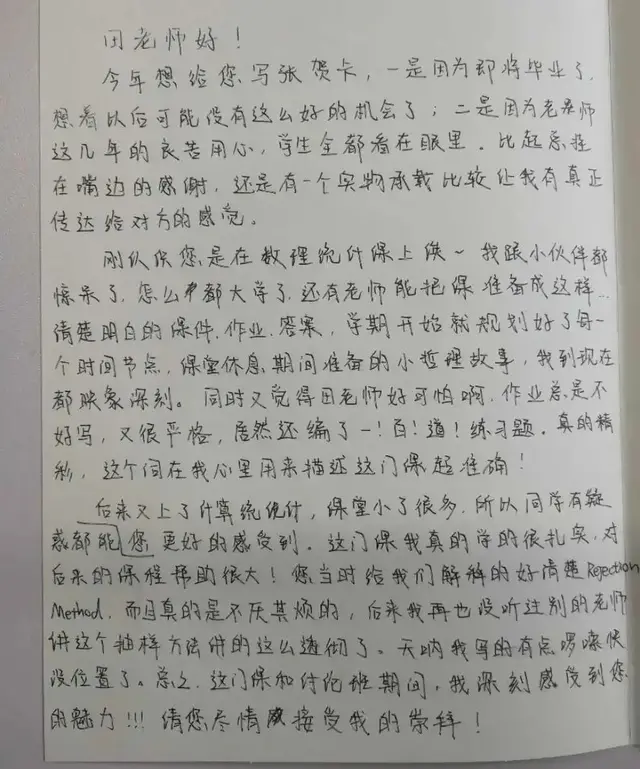 田老师好！
今年想给您写张贺卡，一是因为即将毕业了，
想着以后可能没有这么好的机会了；二是因为老师
这几年的良苦用心，学生全都看在眼里。比起总挂
在嘴边的感谢，还是有一个实物承载比较让我有真正
传达给对方的感觉。
刚认识您是在数理统计课上，我跟小伙伴都
惊呆了，怎么都大学了，还有老师能把课准备成这样…
清楚明白的课件、作业、答案，学期开始就规划好了每一
个时间节点，课堂休息期间准备的小哲理故事，我到现在
都映象深刻。同时又觉得田老师好可怕啊，作业总是不
好写，又很严格，居然还编了一！百！道！练习题。真的精
彩，这个词在我心里用来描述这门课超准确！
后来又上了计算统计，课堂小了很多，所以同学有疑
惑都能您更好的感受到。这门课我真的学的很扎实，对
后来的课程帮助很大！您当时给我们解释的好清楚Rejection
Method，而且真的是不厌其烦的，后来我再也没听过别的老师
讲这个抽样方法讲的这么透彻了。天呐我写的有点啰嗦快
没位置了。总之，这门课和讨论班期间，我深刻感受到您
的魅力！！！请您尽情接受我的崇拜！